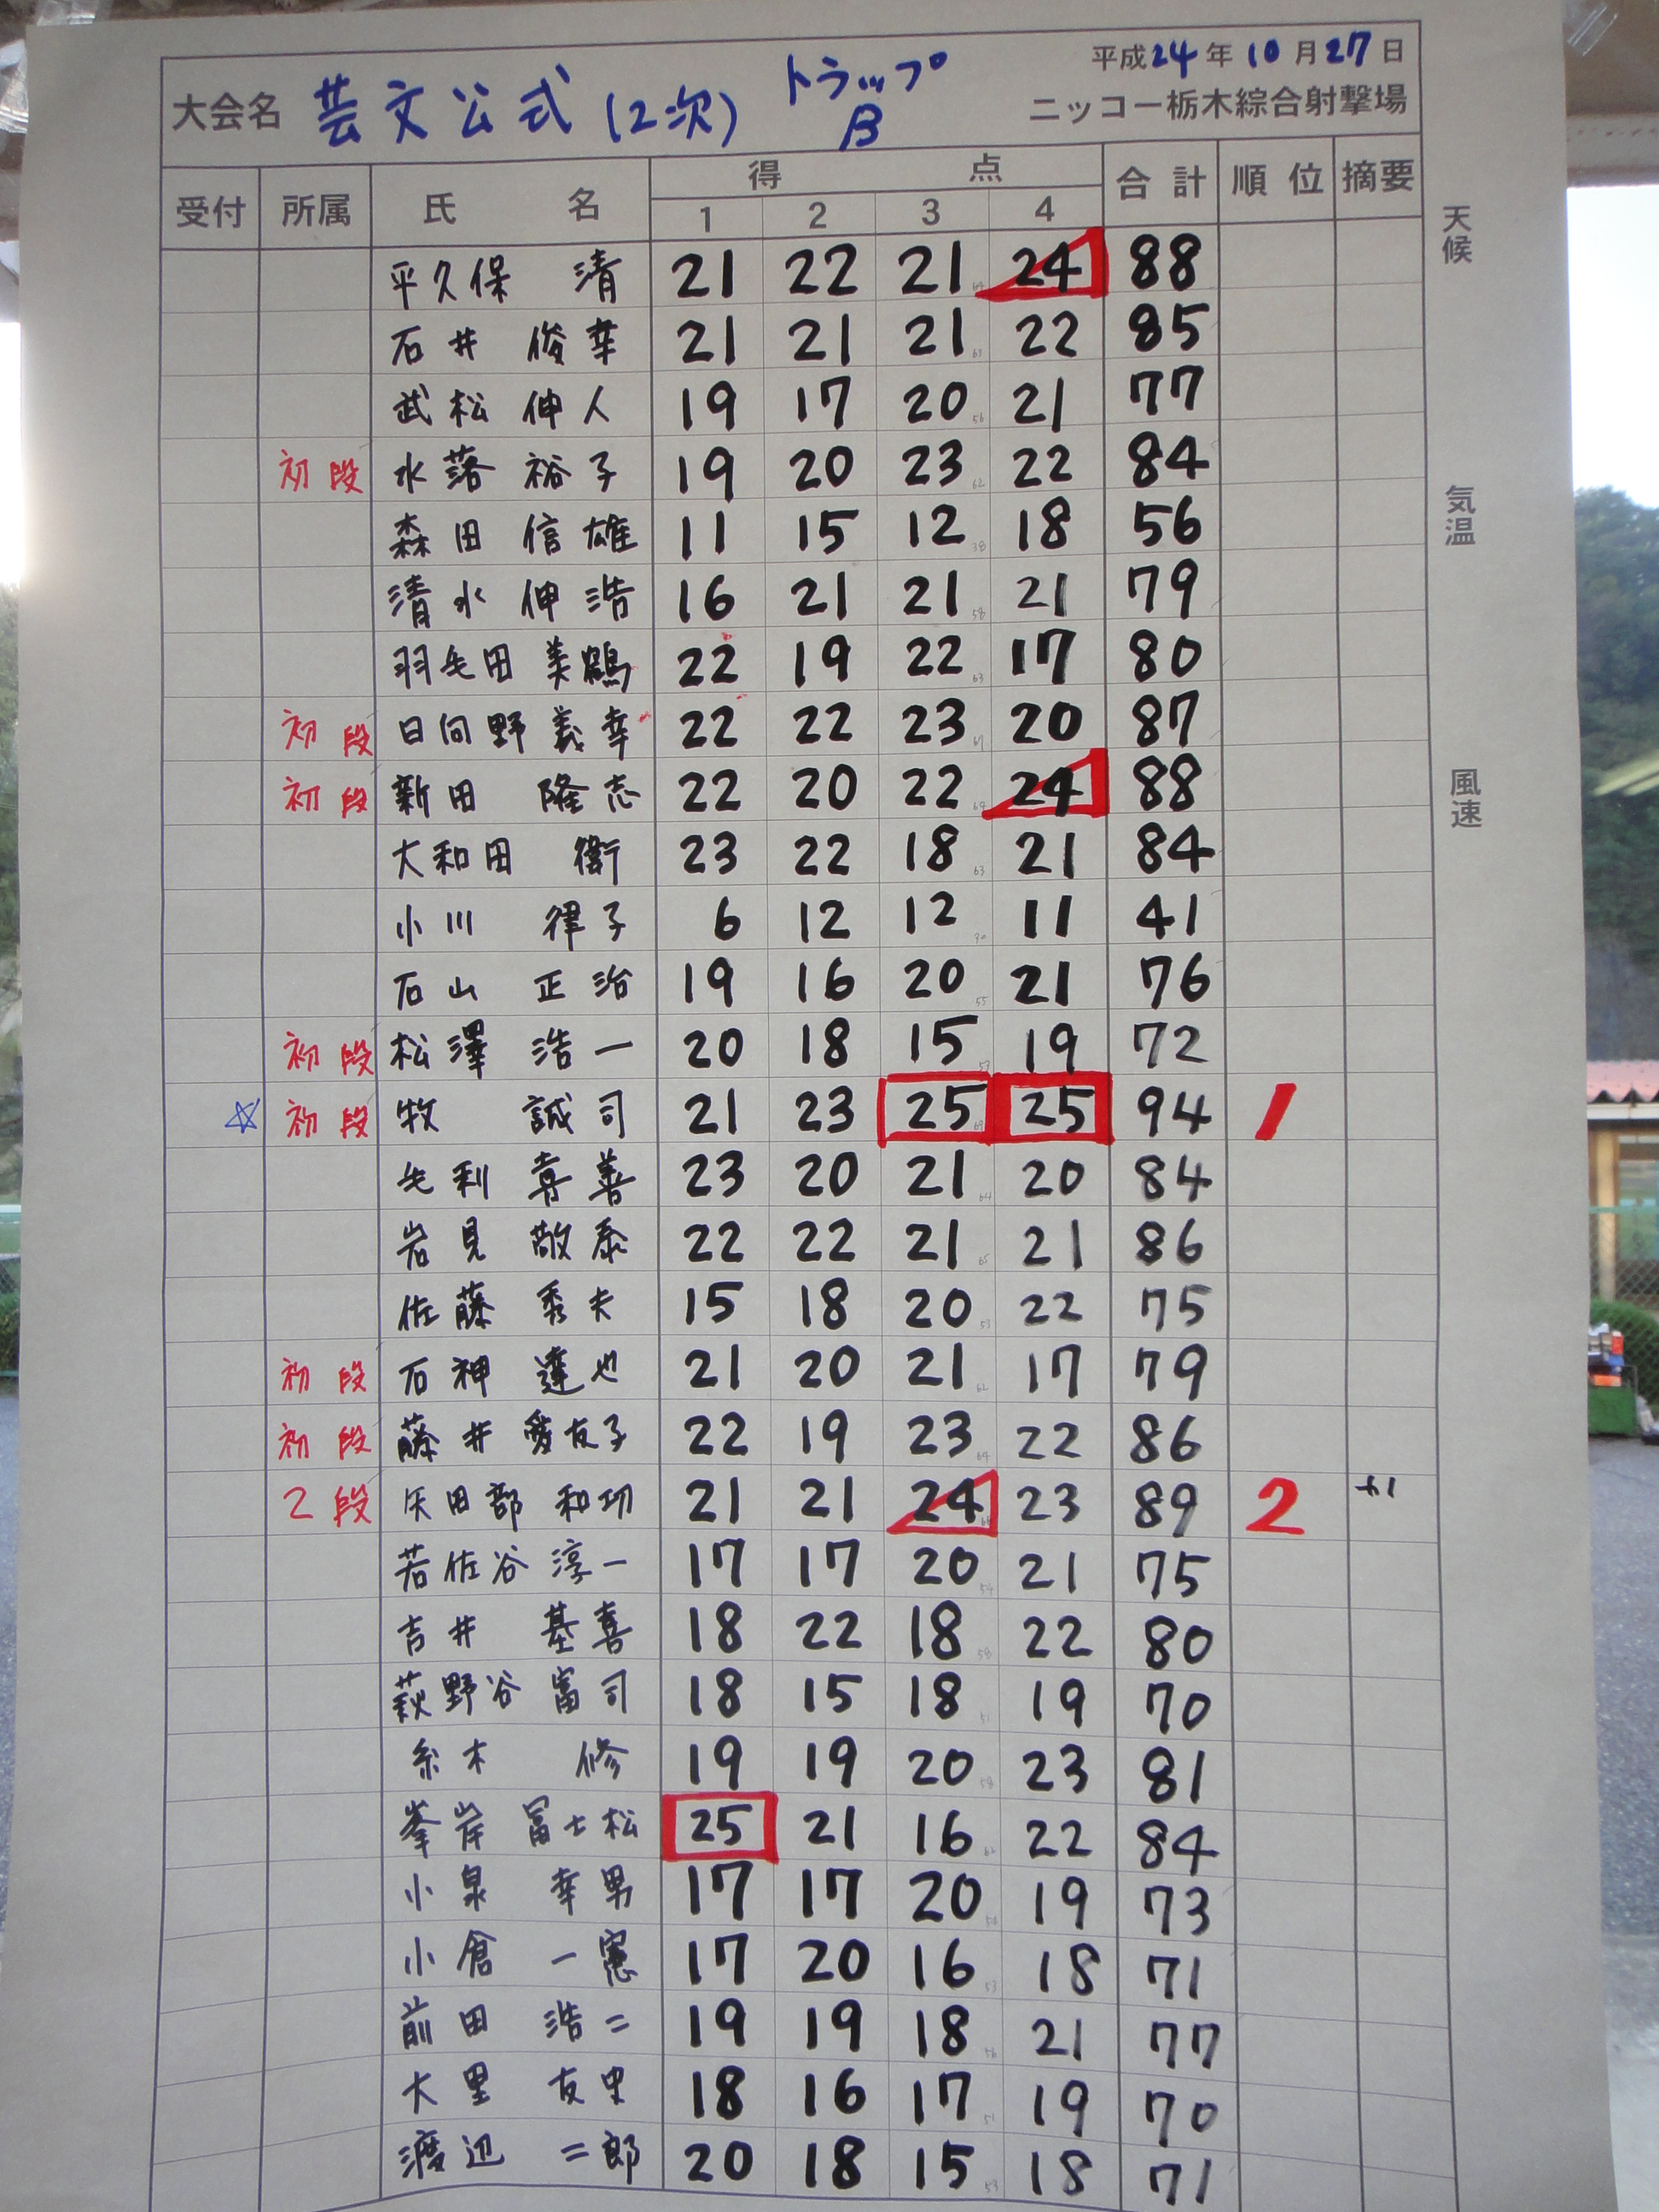 平成24年10月27日
大会名 芸文公式(2次) トラップB ニッコー栃木綜合射撃場
受付 所属 氏名 得点 合計 順位 摘要
1 2 3 4
天候
気温
風速
平久保 清 21 22 21 24 88
石井 俊幸 21 21 21 22 85
武松 伸人 19 17 20 21 77
初段 水落 裕子 19 20 23 22 84
森田 信雄 11 15 12 18 56
清水 伸浩 16 21 21 21 79
羽毛田 美鶴 22 19 22 17 80
初段 日向野 義幸 22 22 23 20 87
初段 新田 隆志 22 20 22 24 88
大和田 衛 23 22 18 21 84
小川 律子 6 12 12 11 41
石山 正治 19 16 20 21 76
初段 松澤 浩一 20 18 15 19 72
☆ 初段 牧 誠司 21 23 25 25 94 1
毛利 喜善 23 20 21 20 84
岩見 敬泰 22 22 21 21 86
佐藤 秀夫 15 18 20 22 75
初段 石神 達也 21 20 21 17 79
初段 藤井 愛友子 22 19 23 22 86
2段 矢田部 和功 21 21 24 23 89 2
若佐谷 淳一 17 17 20 21 75
吉井 基喜 18 22 18 22 80
萩野谷 富司 18 15 18 19 70
糸木 修 19 19 20 23 81
峯岸 冨士松 25 21 16 22 84
小泉 幸男 17 17 20 19 73
小倉 一憲 17 20 16 18 71
前田 浩二 19 19 18 21 77
大里 友史 18 16 17 19 70
渡辺 二郎 20 18 15 18 71